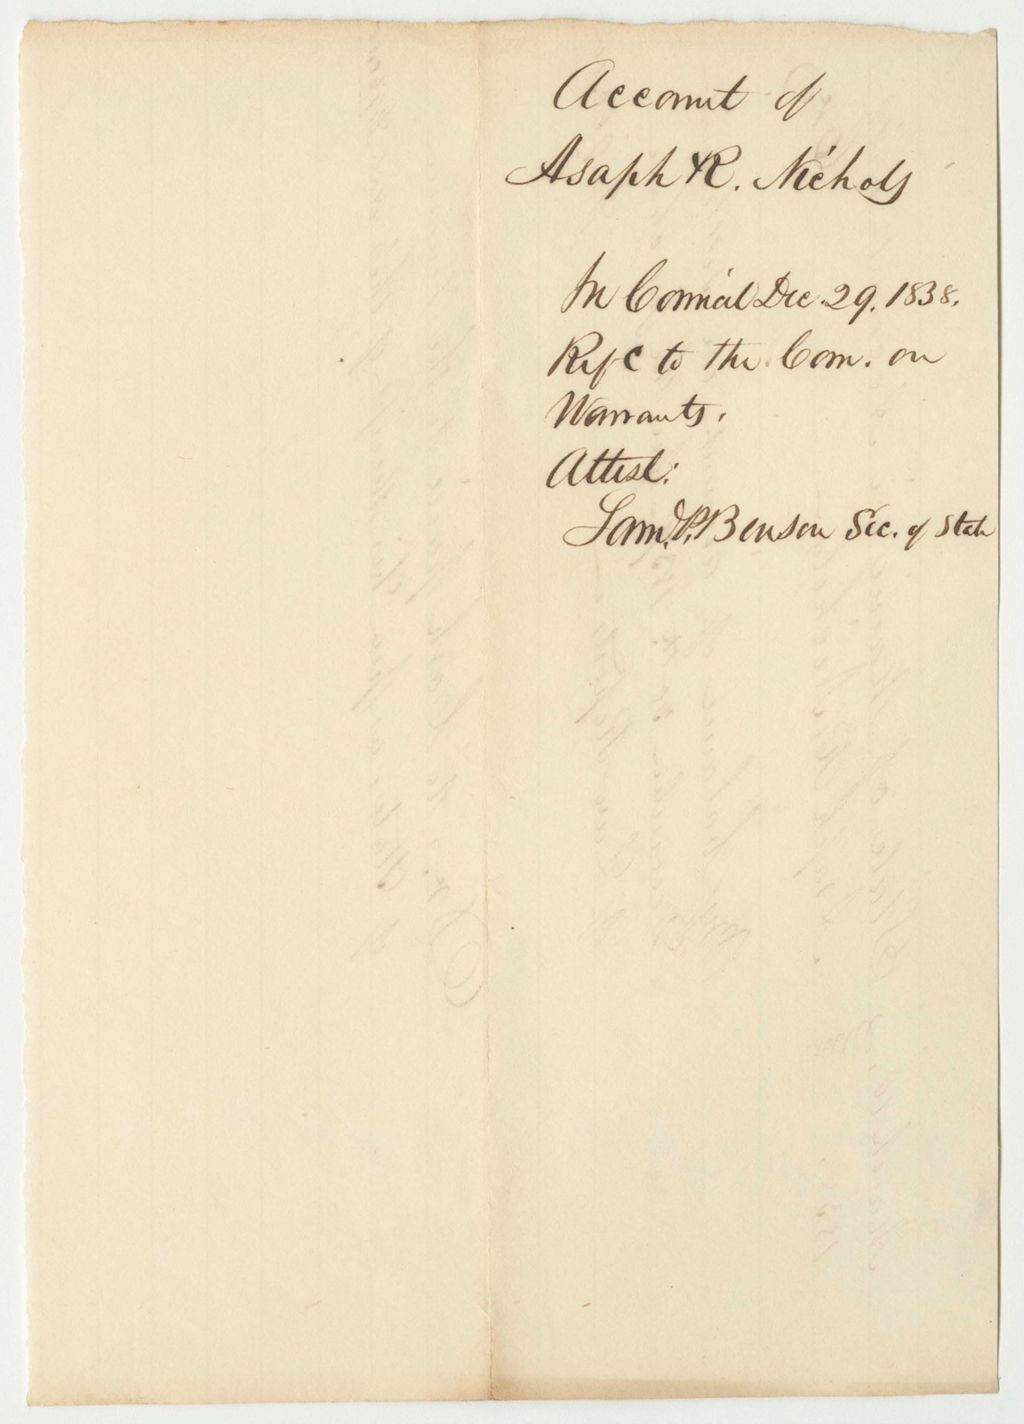 Account of
Asaph R. Nichols
In Council Dec. 29. 1838.
Refd to the Com. on
Warrants.
Attest:
Saml. P. Benson Sec. of State